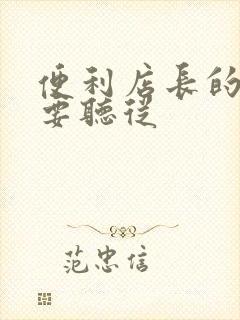 便利店長的
要聽從
范忠信